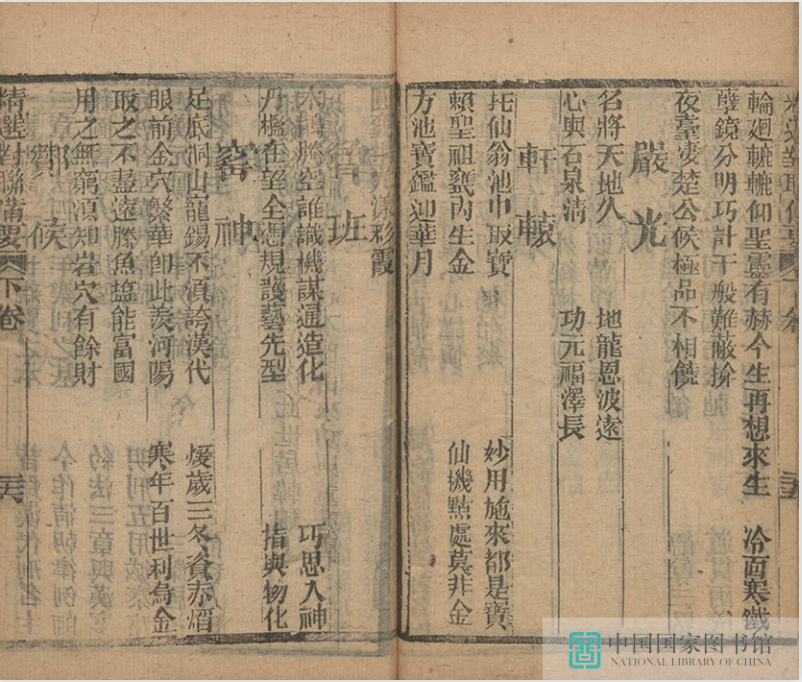 輪廻轆轆仰聖靈有赫今生再想來生 冷面寒鐵
孽鏡分明巧計千般難蔽扮
夜臺凄楚公候極品不相饒
嚴光
名將天地久 地龍恩波遠
心與石泉清 功元福澤長
軒轅
托仙翁池中取寶 妙用施來都是寶
賴聖祖甕內生金 仙機點處莫非金
方池寶鑑迎華月
彩霞
班
木鵲騰空誰識機謀通造化 巧思入神
丹檻在望全憑規護藝先型 指與物化
窰神
足底洞山寵錫不須誇漢代 煖歲三冬資赤熖
眼前金穴繁華即此羨河陽 寒年百世利烏金
取之不盡遠勝魚塩能富國
用之無窮須知岩穴有餘財
候
精選對聯備要 下卷 三六
中国国家图书馆
NATIONAL LIBRARY OF CHINA